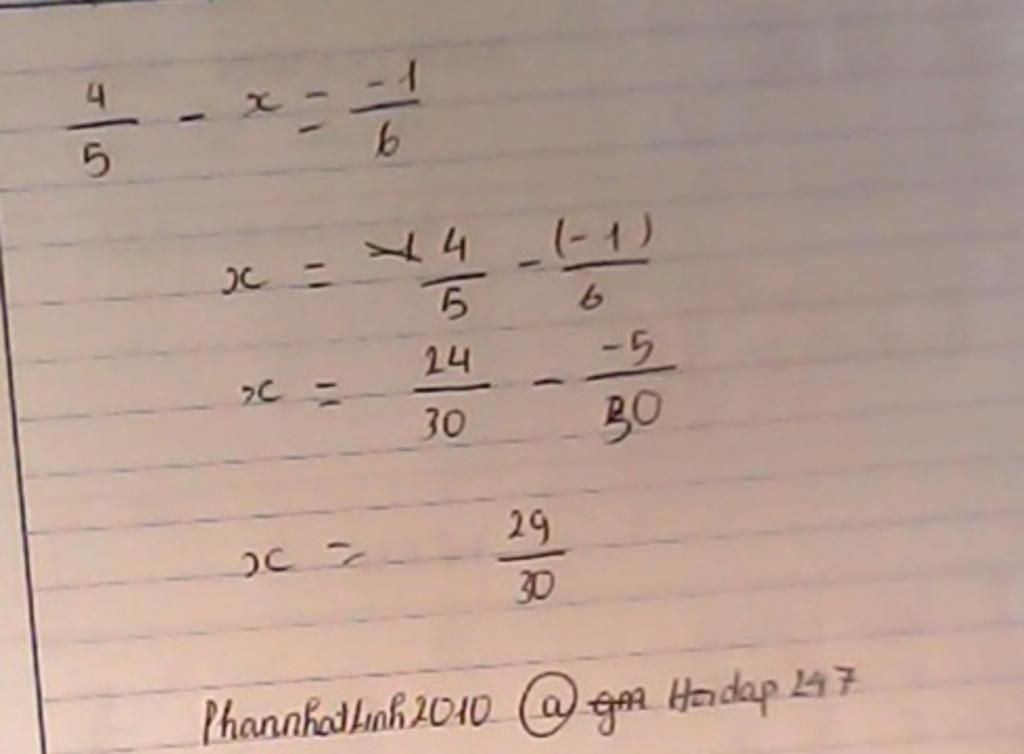 4/5 - x = -1/6
x = 4/5 - (-1)/6
x = 24/30 - -5/30
x = 29/30
Phannhatlinh2010 @ gm Hoidap 247